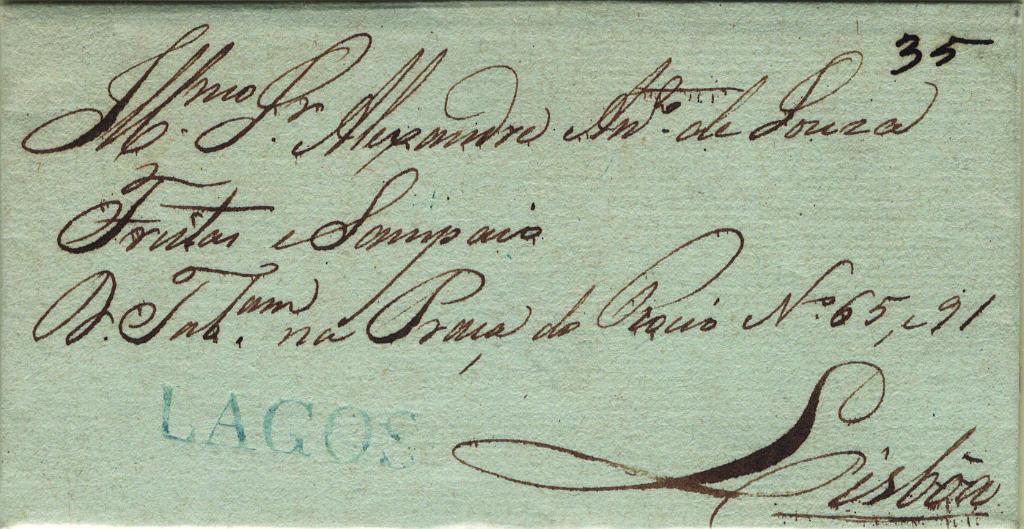 35
Illmo Sr. Alexandre Anto. de Souza
Freitas e Sampaio
na Praça do Rocio No. 65, e 91
LAGOS
Lisbôa